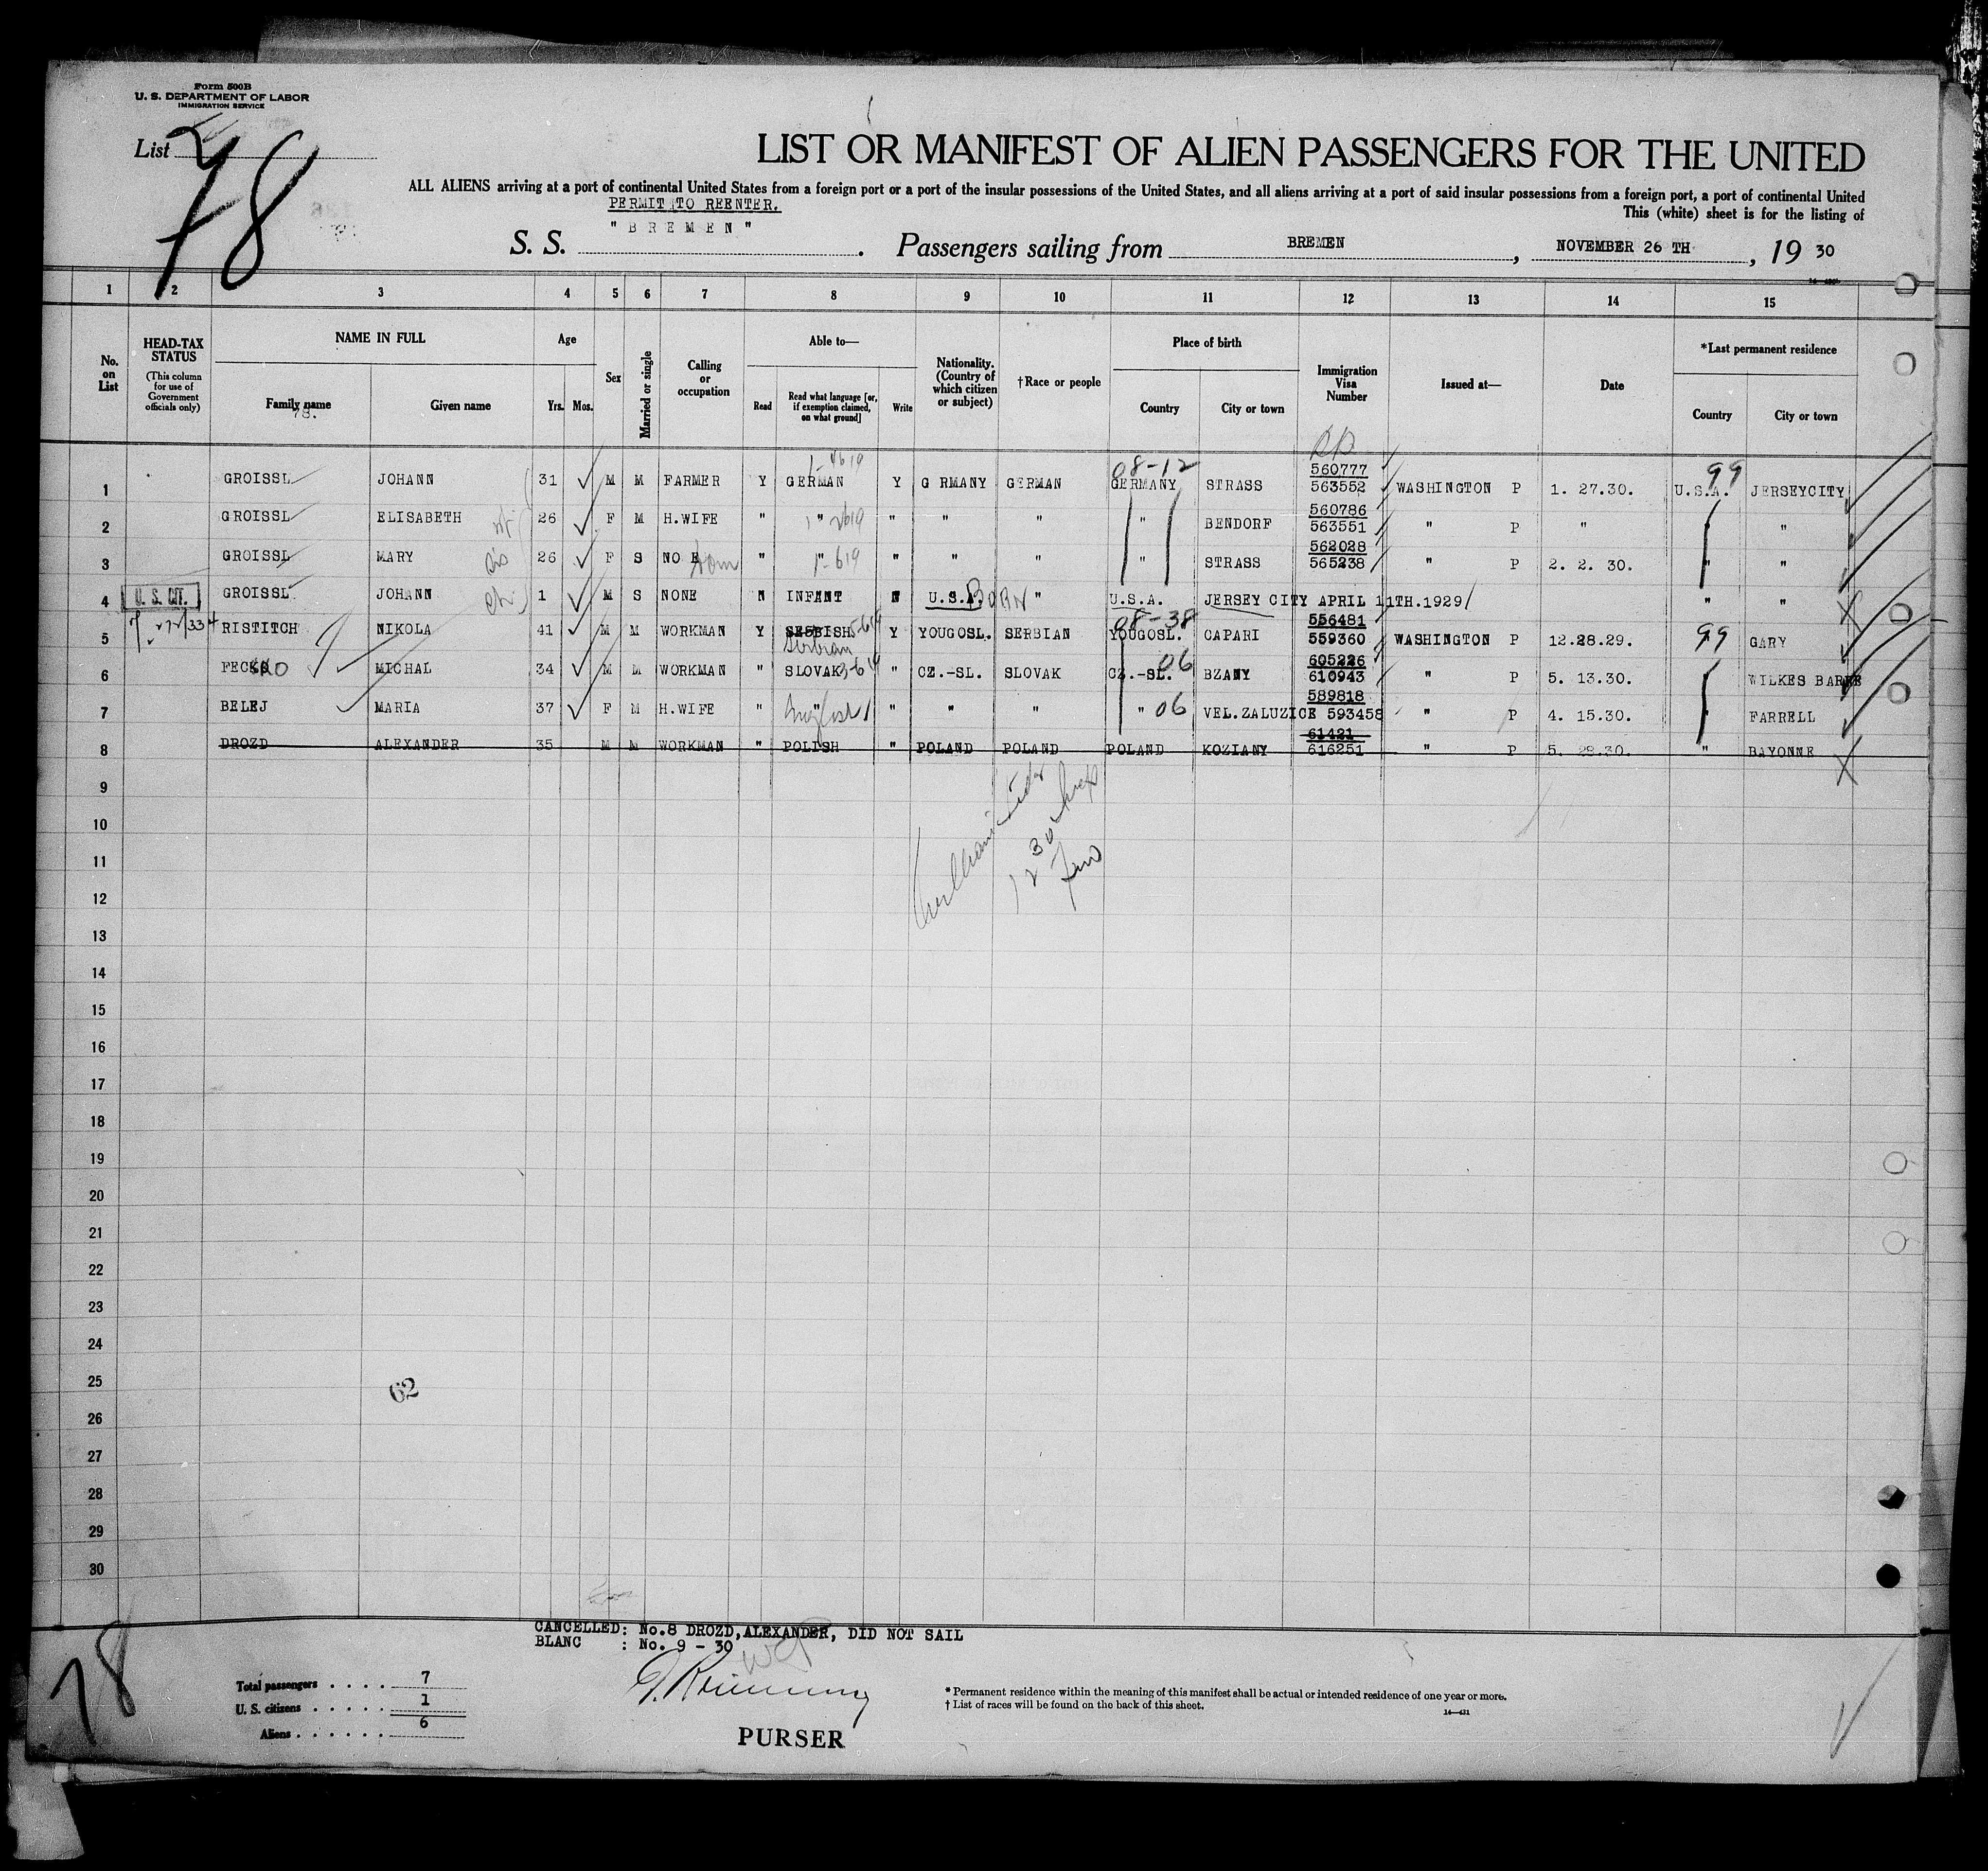 Form 500B
U. S. DEPARTMENT OF LABOR
IMMIGRATION SERVICE
List
78
LIST OR MANIFEST OF ALIEN PASSENGERS FOR THE UNITED
ALL ALIENS arriving at a port of continental United States from a foreign port or a port of the insular possessions of the United States, and all aliens arriving at a port of said insular possessions from a foreign port, a port of continental United
PERMIT TO REENTER.
This (white) sheet is for the listing of
S. S. "BREMEN". Passengers sailing from BREMEN, NOVEMBER 26 TH, 19 30
1 2 3 4 5 6 7 8 9 10 11 12 13 14 15
No. on List
HEAD-TAX STATUS
(This column for use of Government officials only)
NAME IN FULL
Family name
78.
Given name
Age
Yrs. Mos.
Sex
Married or single
Calling or occupation
Able to—
Read
Read what language [or, if exemption claimed, on what ground]
Write
Nationality. (Country of which citizen or subject)
†Race or people
Place of birth
Country
City or town
Immigration Visa Number
Issued at—
Date
*Last permanent residence
Country
City or town
1 GROISSL JOHANN 31 M M FARMER Y GERMAN Y G RMANY GERMAN 08-12 GERMANY STRASS 560777 563552 WASHINGTON P 1. 27.30. U.S.A. 99 JERSEYCITY
2 GROISSL ELISABETH 26 F M H.WIFE " " " " " " BENDORF 560786 563551 " P " "
3 GROISSL MARY sis 26 F S NO E dom " " " " " STRASS 562028 565238 " P 2. 2. 30. " "
4 U. S. CIT. GROISSL JOHANN ch 1 M S NONE N INFANT N U.S.A. BORN " U.S.A. JERSEY CITY APRIL 11TH.1929 " "
5 RISTITCH NIKOLA 41 M M WORKMAN Y SERBISH Serbian Y YOUGOSL. SERBIAN 08-38 YOUGOSL. CAPARI 556481 559360 WASHINGTON P 12.28.29. 99 GARY
6 FECKO MICHAL 34 M M WORKMAN " SLOVAK " CZ.-SL. SLOVAK CZ.-SL. 06 BZANY 605226 610943 " P 5. 13.30. WILKES BARRE
7 BELEJ MARIA 37 F M H.WIFE " " English " " " " 06 VEL.ZALUZICE 589818 593458 " P 4. 15.30. " FARRELL
8 DROZD ALEXANDER 35 M M WORKMAN " POLISH " POLAND POLAND POLAND KOZIANY 61421 616251 " P 5. 28.30. " BAYONNE
9
10
11
12
13
14
15
16
17
18
19
20
21
22
23
24
25
26
27
28
29
30
62
CANCELLED: No.8 DROZD,ALEXANDER, DID NOT SAIL
BLANC : No. 9 - 30
78
Total passengers . . . . 7
U. S. citizens . . . . . 1
Aliens . . . . . . 6
PURSER
* Permanent residence within the meaning of this manifest shall be actual or intended residence of one year or more.
† List of races will be found on the back of this sheet.
14—431